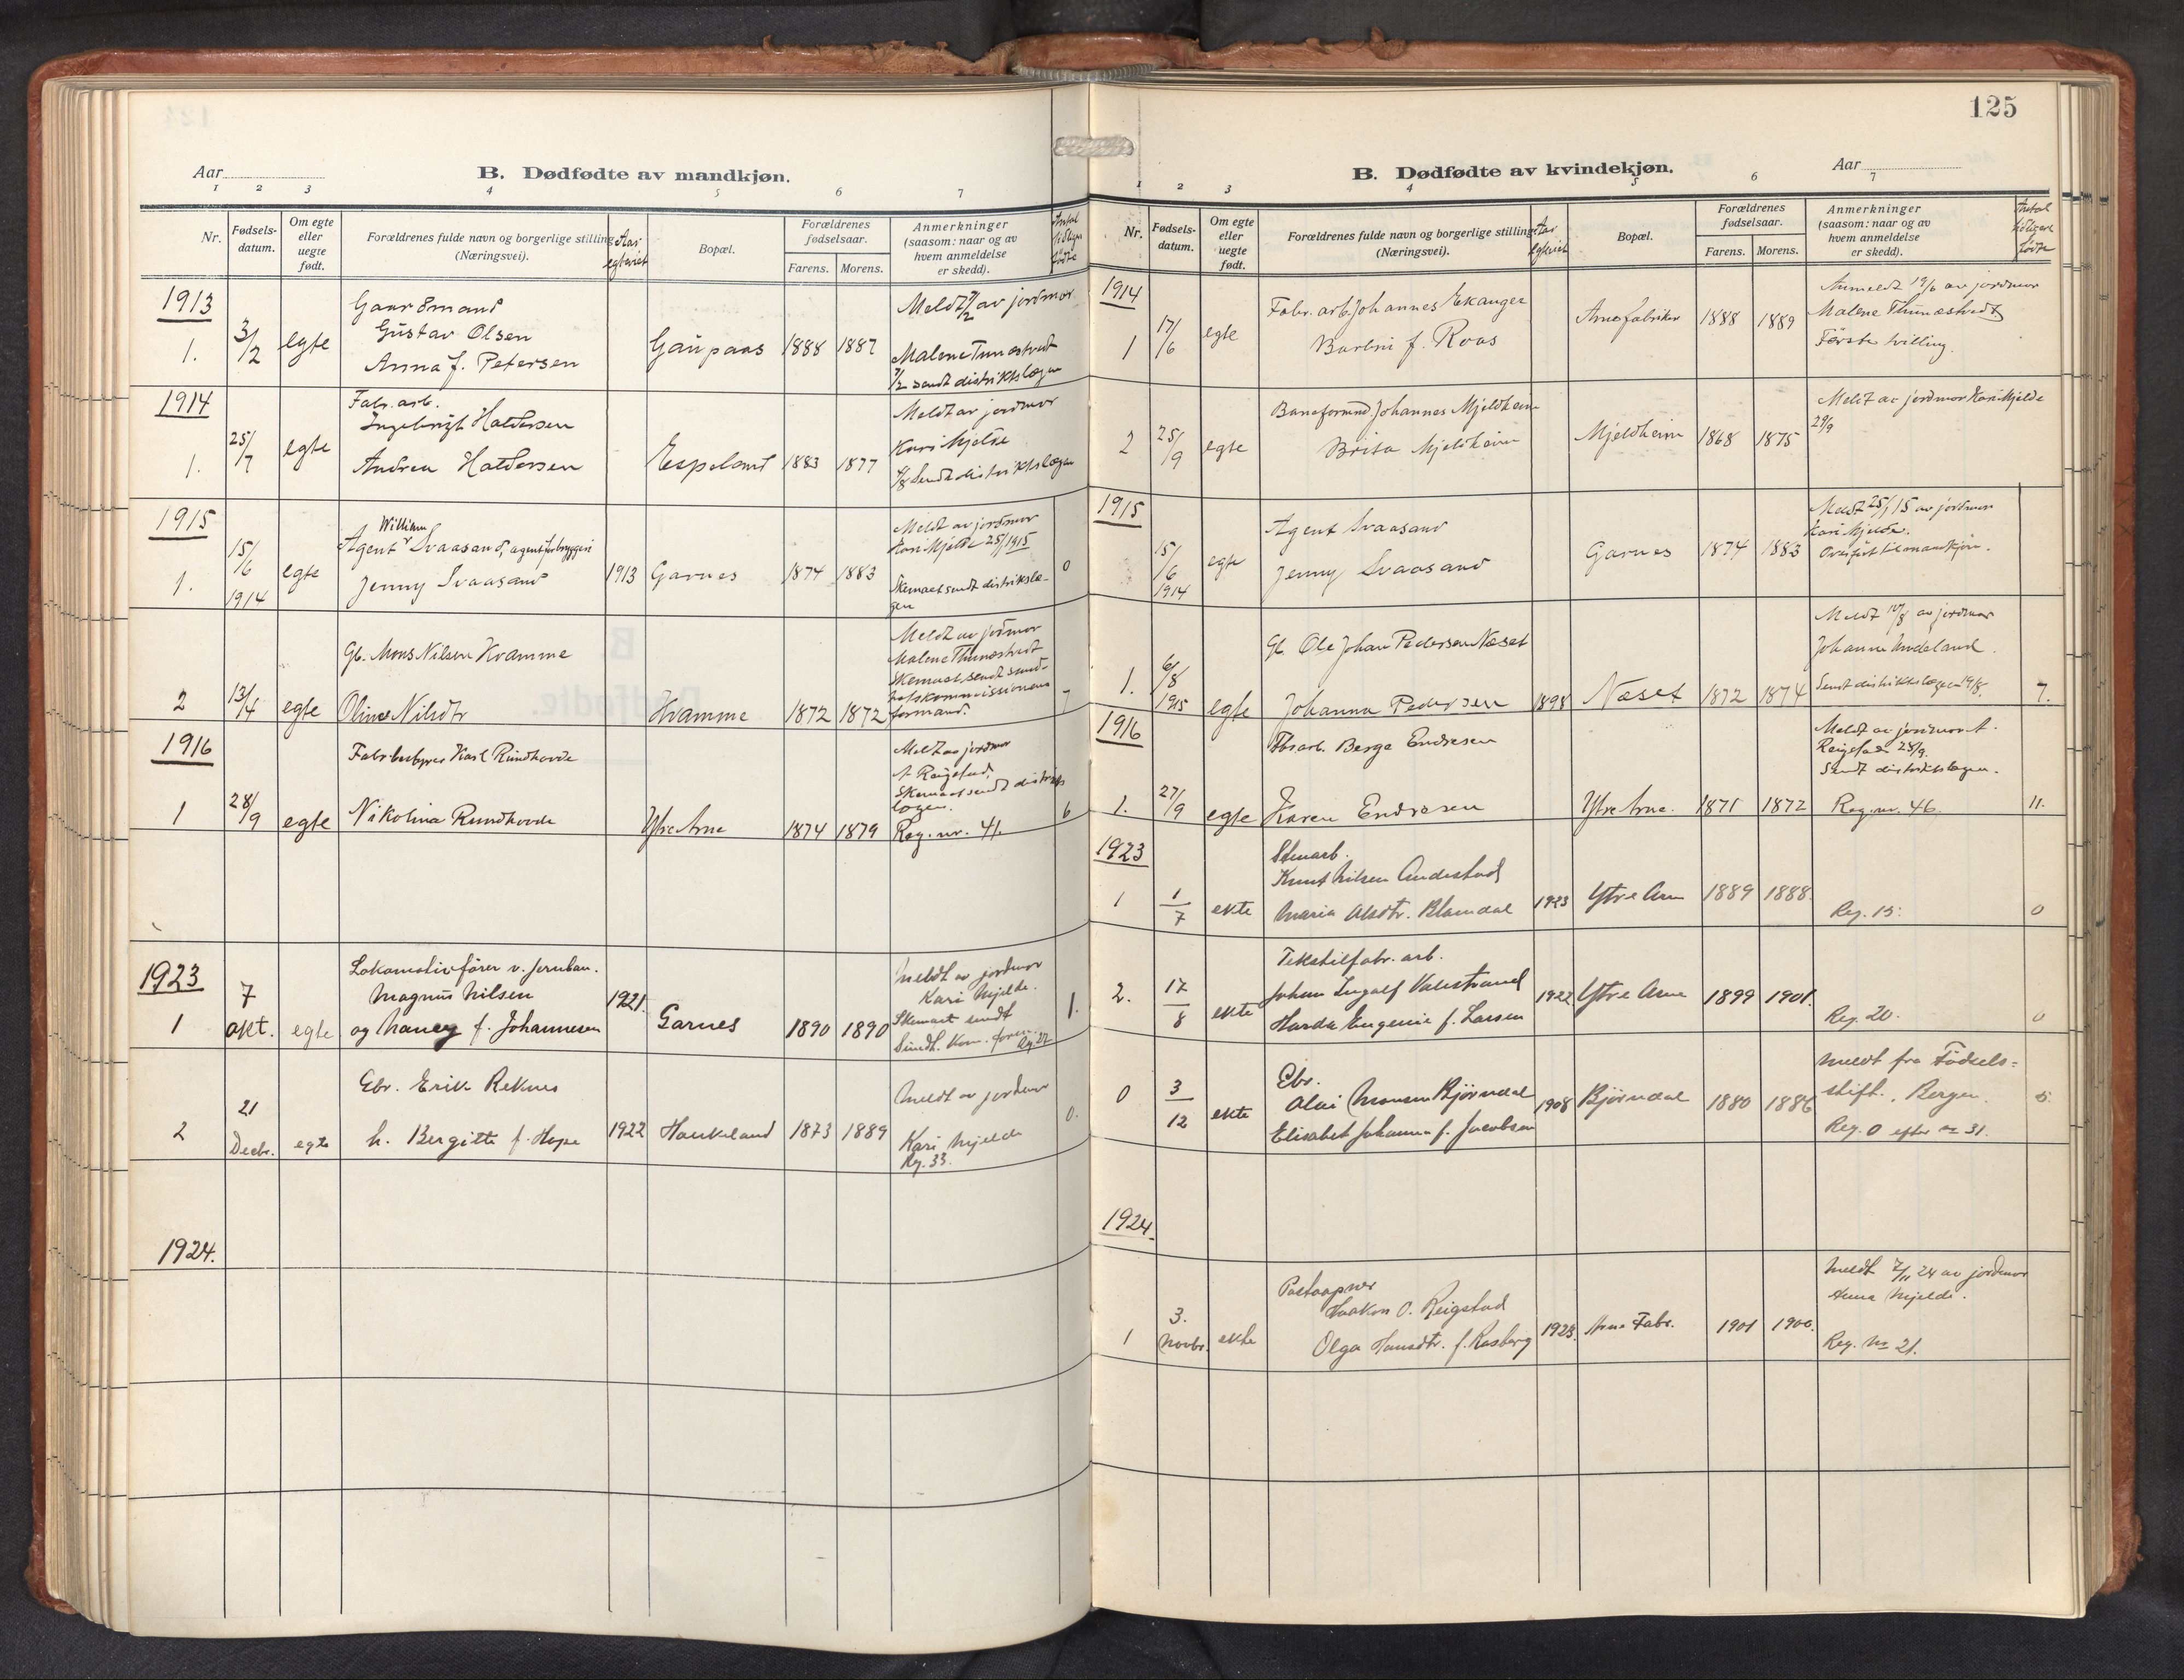 Aar
B. Dødfødte av mandkjøn.
1 2 3 4 5 6 7
Nr.
Fødsels-
datum.
Om egte
eller
uegte
født.
Forældrenes fulde navn og borgerlige stilling
(Næringsvei).
Aar
egteviet
Bopæl.
Forældrenes
fødselsaar.
Farens. Morens.
Anmerkninger
(saasom: naar og av
hvem anmeldelse
er skedd).
Antal
tidligere
fødte
1913
1. 3/2 egte
Gaardmand
Gustav Olsen
Anna f. Petersen
Gaupaas 1888 1887
Meldt 7/2 av jordmor
Malene Tunestvedt
7/2 sendt distriktslægen
1914
1. 25/7 egte
Fabr. arb.
Ingebrigt Haldersen
Andrea Haldersen
Espeland 1883 1877
Meldt av jordmor
Kari Mjelde
4/8 Sendt distriktslægen
1915
1. 15/6 1914 egte
William
Agent Svaasand, agent for bryggeri
Jenny Svaasand
1913 Garnes 1874 1883
Meldt av jordmor
Kari Mjelde 25/1 1915
Skemaet sendt distriktslæ-
gen
0
2 13/4 egte
Gb. Mons Nilsen Kvamme
Oline Nilsdtr
Kvamme 1872 1872
Meldt av jordmor
Malene Thunestvedt
Skemaet sendt sund-
hetskommissionens
formand.
7
1916
1 28/9 egte
Karl Rundhovde
Nikolina Rundhovde
Ytre Arne 1874 1879
Meldt av jordmor
A. Reigstad.
Skemaet sendt distrikts
lægen.
Reg. nr. 41.
6
1923
1 7 okt. egte
Lokomotivfører v. Jernban.
Magnus Nilsen
og Nancy f. Johannesen
1921. Garnes 1890 1890
Meldt av jordmor
Kari Mjelde.
Skemaet sendt
Sundh. Kom. form.
Reg. 27
1.
2 21 Decbr. egte
Gbr. Erik Reknes
h. Bergitte f. Hope
1922 Haukeland 1873 1889
Meldt av jordmor
Kari Mjelde
Reg. 33.
0.
1924.
125
B. Dødfødte av kvindekjøn.
Aar
1 2 3 4 5 6 7
Nr.
Fødsels-
datum.
Om egte
eller
uegte
født.
Forældrenes fulde navn og borgerlige stilling
(Næringsvei).
Aar
egteviet
Bopæl.
Forældrenes
fødselsaar.
Farens. Morens.
Anmerkninger
(saasom: naar og av
hvem anmeldelse
er skedd).
Antal
tidligere
fødte
1914
1 17/6 egte
Fabr. arb. Johannes Ekanger
Barbri f. Roas
Arnefabriker 1888 1889
Anmeldt 19/6 av jordmor
Malene Thunestvedt
Første tvilling.
2 25/9 egte
Baneformd. Johannes Mjeldheim
Brita Mjeldheim
Mjeldheim 1868 1875
Meldt av jordmor Kari Mjelde
29/9
1915
15/6 1914 egte
Agent Svaasand
Jenny Svaasand
Garnes 1874 1883
Meldt 25/1 15 av jordmor
Kari Mjelde.
Overført til mandkjøn.
1. 6/8 1915 egte
Gb. Ole Johan Pedersen Næset
Johanna Pedersen
1898 Næset 1872 1874
Meldt 10/8 av jordmor
Johanne Indeland.
Sendt distriktslægen 19/8.
7.
1916
1. 27/9 egte
Fbrarb. Berge Endresen
Karen Endresen
Ytre Arne. 1871 1872
Meldt av jordmor A.
Reigstad 28/9.
Sendt distriktslægen.
Reg. nr. 46.
11.
1923
1 1/7 ekte
Stenarb.
Knut Nilsen Andestad
Maria Olsdtr. Blomdal
1923 Ytre Arne 1889 1888.
Reg. 15.
0
2. 17/8 ekte
Tekstilfabr. arb.
Johan Ingolf Valestrand
Harda Eugenie f. Larsen
1922 Ytre Arne 1899 1901.
Reg. 20.
0
0 3/12 ekte
Gbr.
Olai Monsen Bjørndal
Elisabet Johanna f. Jacobsen
1908 Bjørndal 1880 1886
Meldt fra Fødsels=
stift., Bergen.
Reg. 0 efter nr 31.
5.
1924.
1 3. Novbr. ekte
Postaapner
Haakon O. Reigstad
Olga Hansdtr. f. Rasberg
1923. Arne Fabr. 1901 1900.
Meldt 7/11 24 av jordmor
Anna Mjelde.
Reg. No 21.